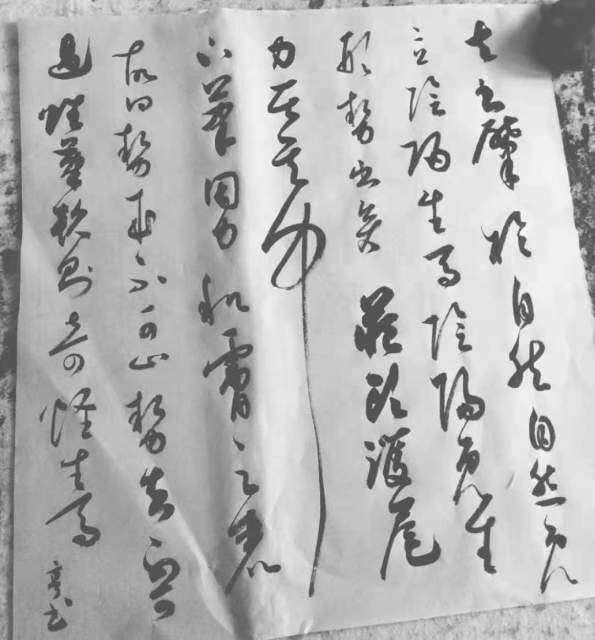 夫书肇於自然自然既
立陰陽生焉陰陽既生
形勢出矣藏頭護尾
力在字中
下筆用力肌膚之麗
故曰勢來不可止勢去不可
遏惟筆软则奇怪生焉